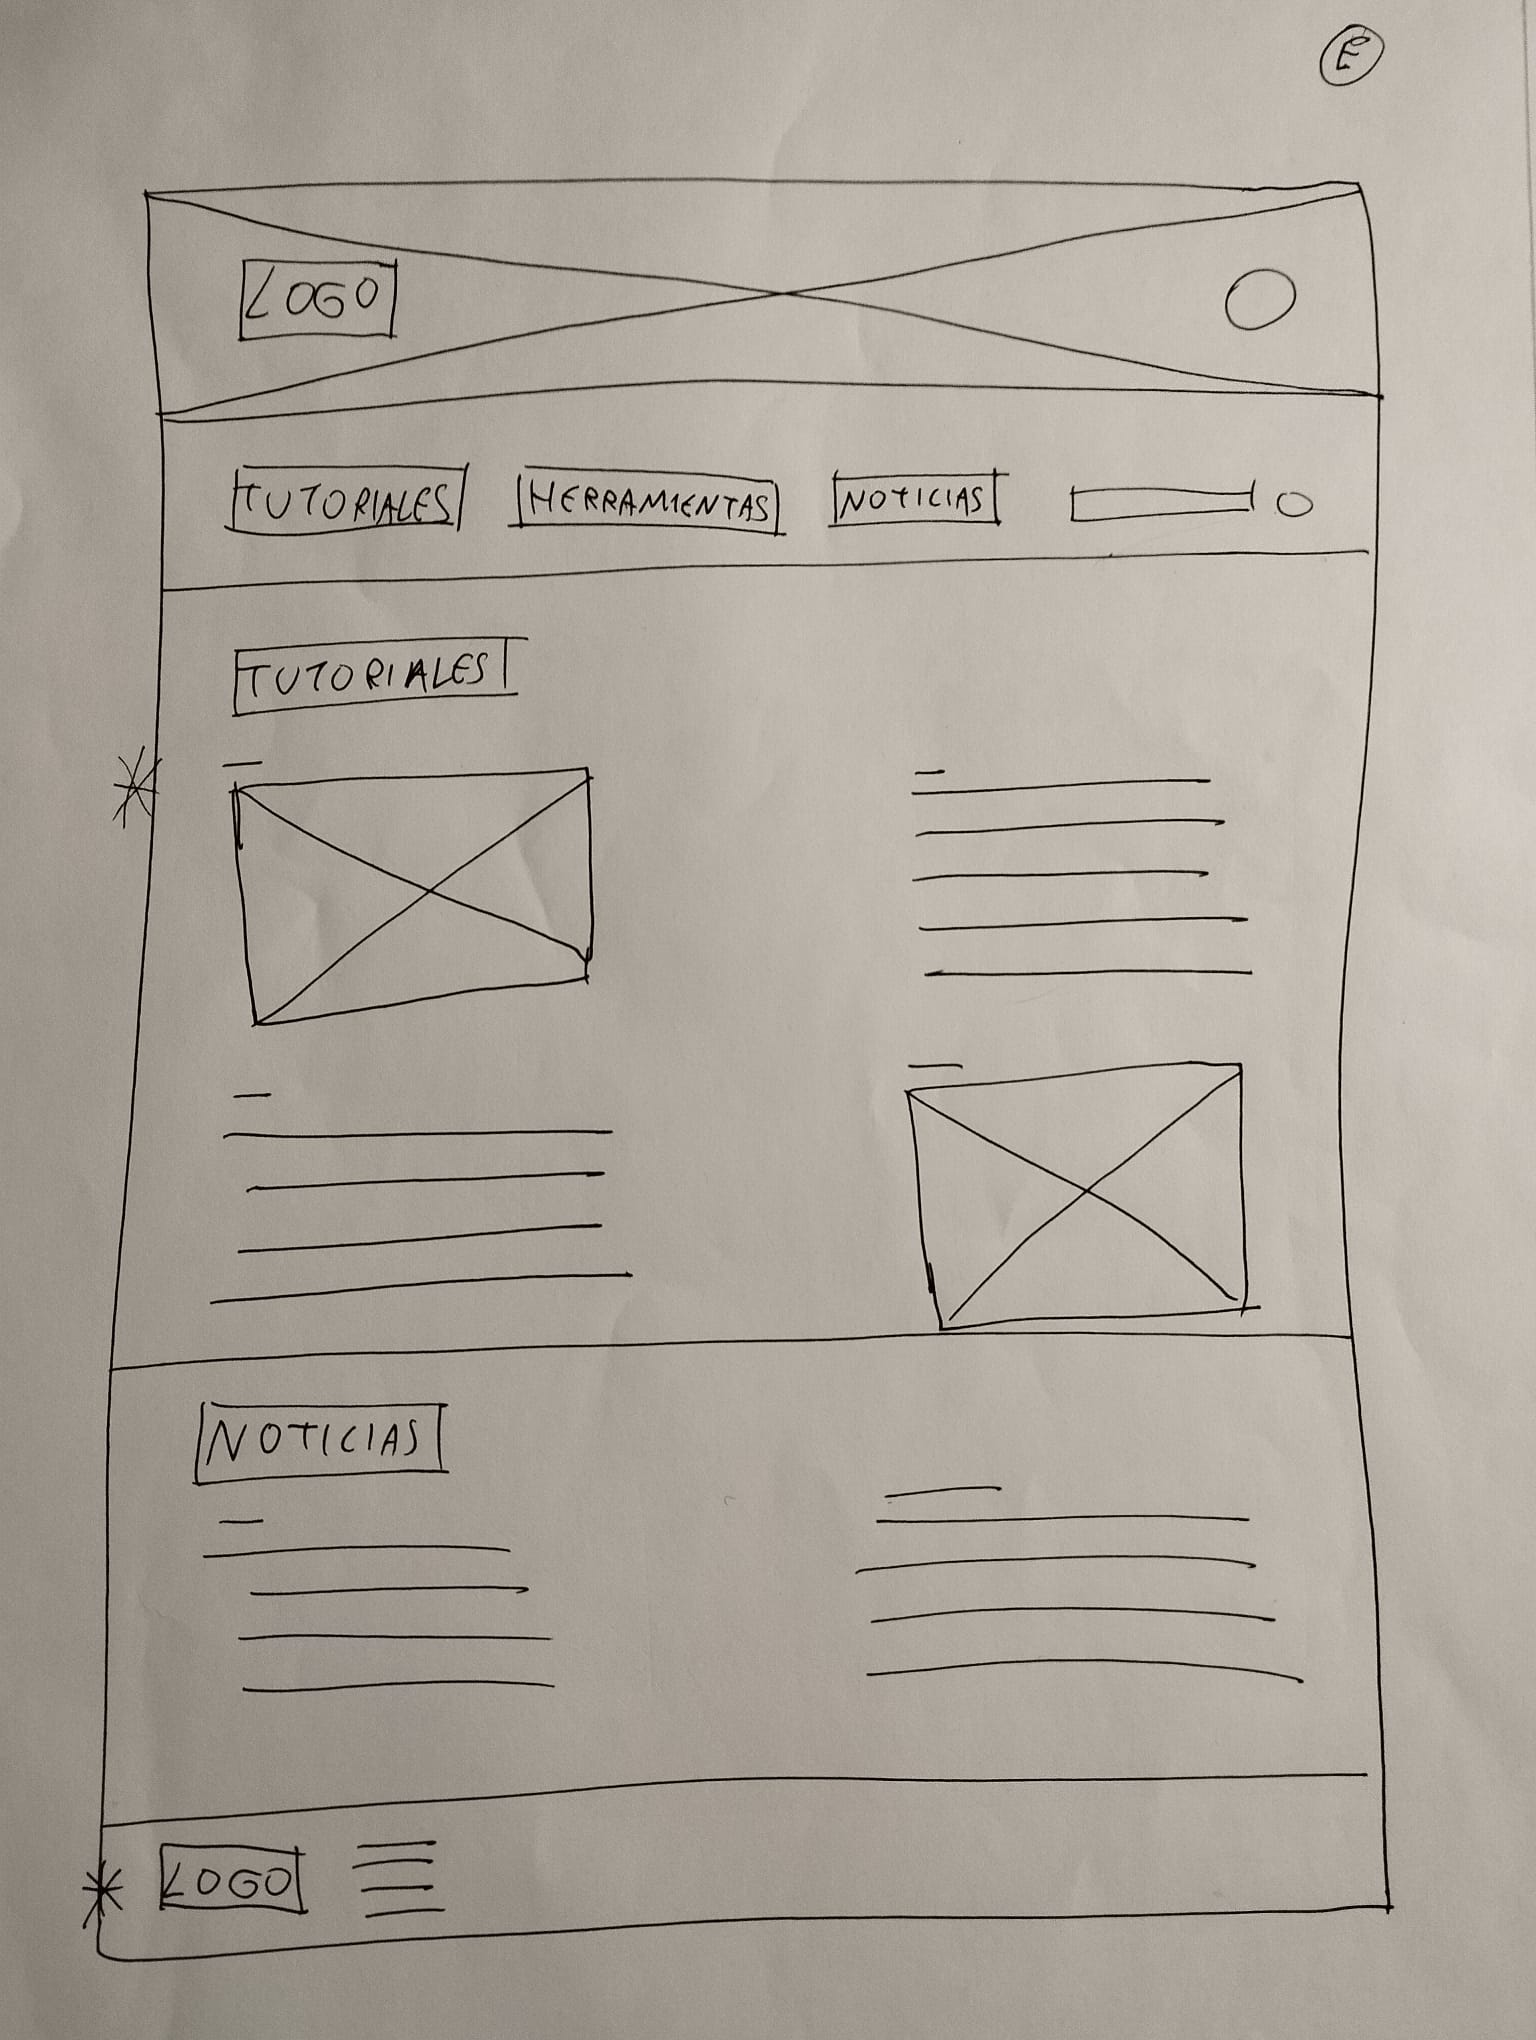 E
LOGO
TUTORIALES HERRAMIENTAS NOTICIAS
TUTORIALES
NOTICIAS
LOGO